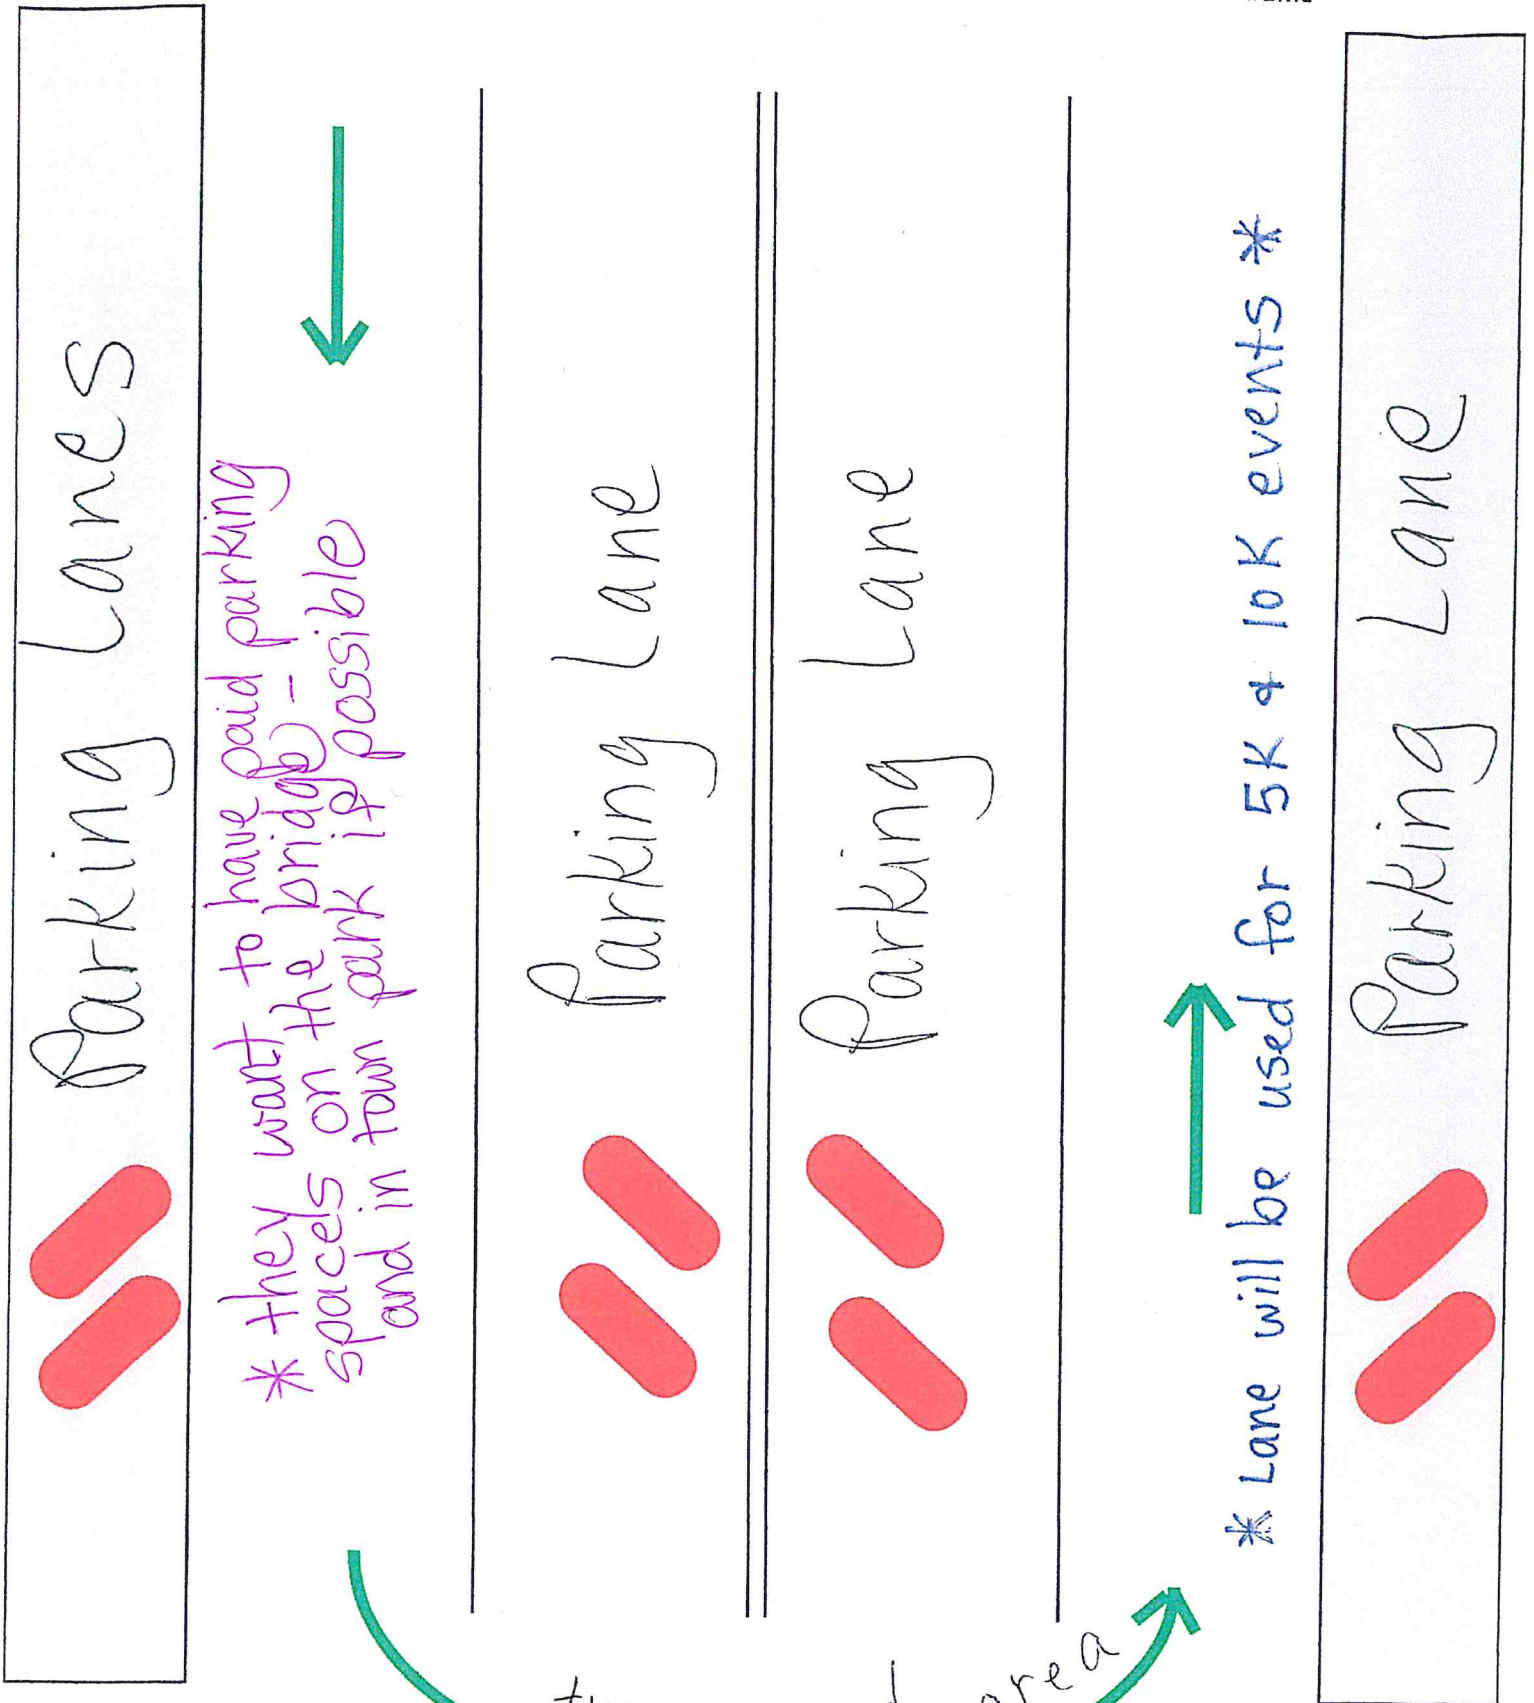 Parking Lanes
* they want to have paid parking
spaces on the bridge -
and in town park if possible
Parking Lane
Parking Lane
* Lane will be used for 5K & 10K events *
Parking Lane
area